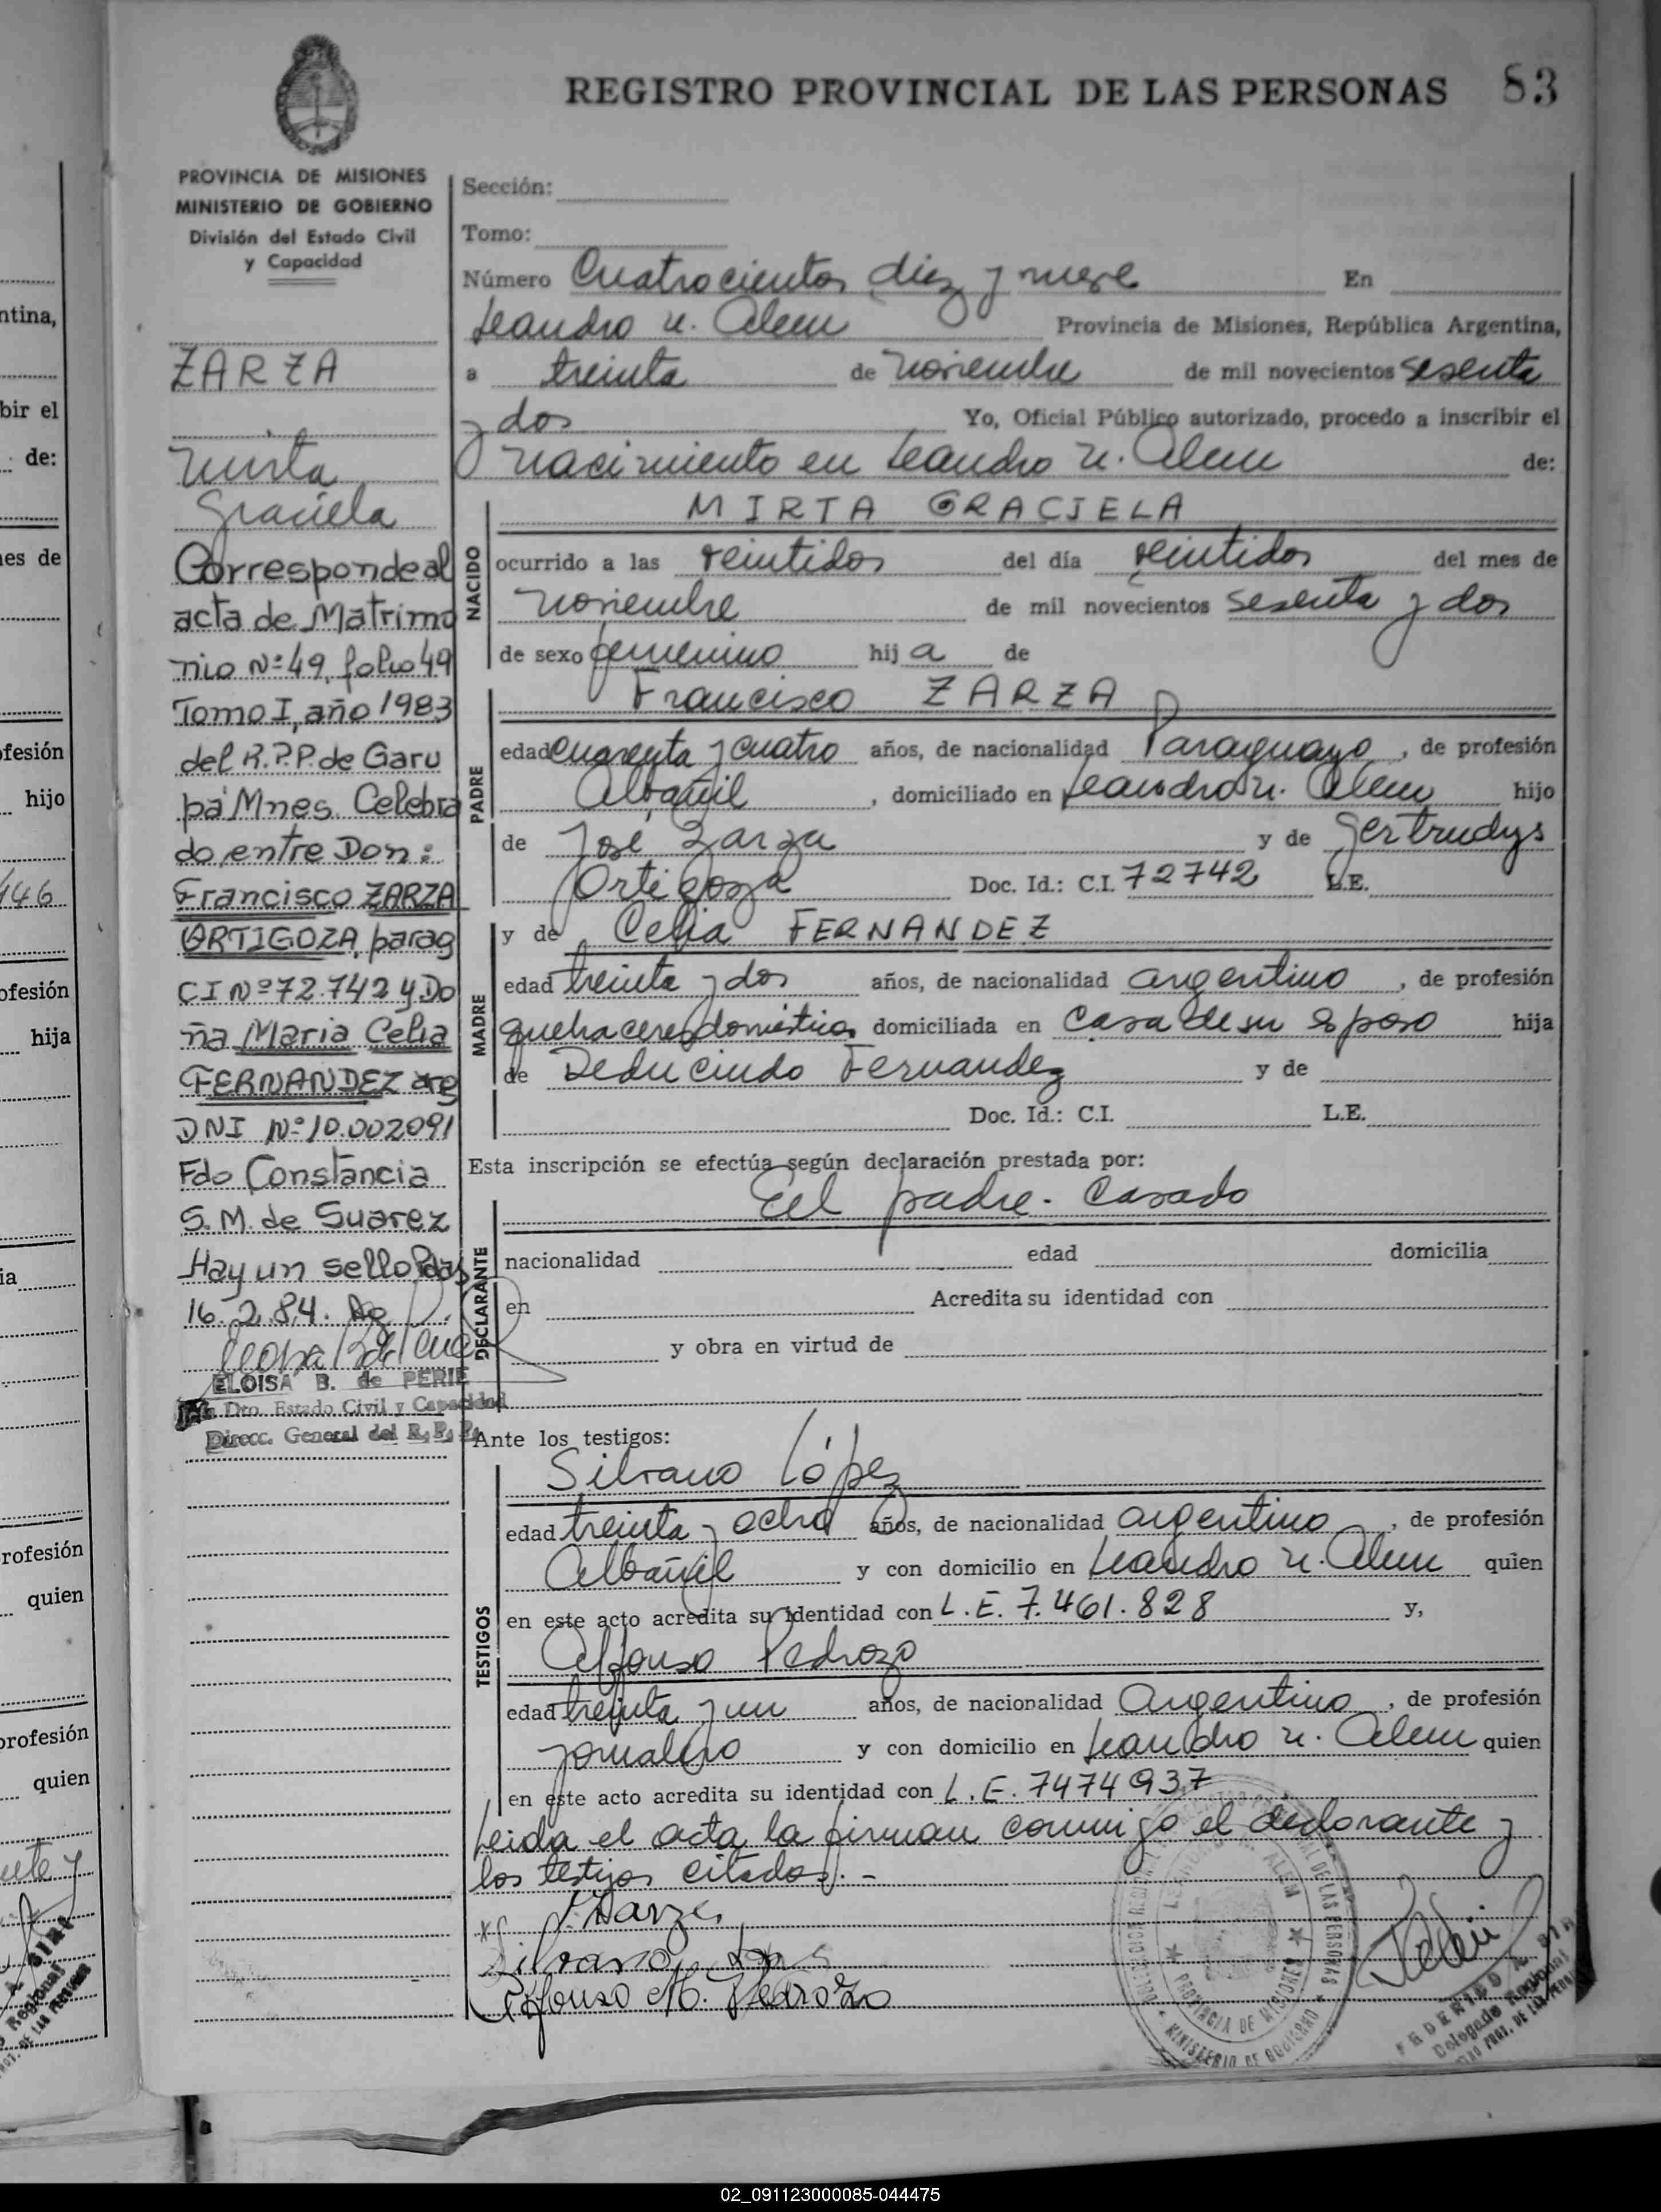 REGISTRO PROVINCIAL DE LAS PERSONAS 83
PROVINCIA DE MISIONES
MINISTERIO DE GOBIERNO
División del Estado Civil
y Capacidad
ZARZA
Mirta
Graciela
Corresponde al
acta de Matrimo
nio Nº 49, folio 49
Tomo I, año 1983
del R.P.P. de Garu
pá Mnes. Celebra
do entre Don:
Francisco ZARZA
ORTIGOZA, parag
CI Nº 72.742 y Do
ña Maria Celia
FERNANDEZ arg
DNI Nº 10.002091
Fdo Constancia
S.M. de Suarez
Hay un sello Pdas
16.2.84.
ELOISA B. de PERIE
Dto. Estado Civil y Capacidad
Direcc. General del R. P. P.
Sección:
Tomo:
Número Cuatrocientos diez y nueve En
Leandro N. Alem Provincia de Misiones, República Argentina,
a treinta de Noviembre de mil novecientos sesenta
y dos Yo, Oficial Público autorizado, procedo a inscribir el
nacimiento en Leandro N. Alem de:
NACIDO
MIRTA GRACIELA
ocurrido a las veintidos del día veintidos del mes de
Noviembre de mil novecientos sesenta y dos
de sexo femenino hij a de
PADRE
Francisco ZARZA
edad cuarenta y cuatro años, de nacionalidad Paraguayo, de profesión
Albañil, domiciliado en Leandro N. Alem hijo
de José Zarza y de Gertrudys
Ortigoza Doc. Id.: C.I. 72742 L.E.
MADRE
y de Celia FERNANDEZ
edad treinta y dos años, de nacionalidad argentino, de profesión
quehaceres domésticos domiciliada en Casa de su esposo hija
de Deducindo Fernandez y de
Doc. Id.: C.I. L.E.
Esta inscripción se efectúa según declaración prestada por:
DECLARANTE
El padre. Casado
nacionalidad edad domicilia
en Acredita su identidad con
y obra en virtud de
Ante los testigos:
TESTIGOS
Silvano López
edad treinta y ocho años, de nacionalidad argentino, de profesión
Albañil y con domicilio en Leandro N. Alem quien
en este acto acredita su identidad con L.E. 7.461.828 y,
Alfonso Pedrozo
edad treinta y un años, de nacionalidad Argentino, de profesión
jornalero y con domicilio en Leandro N. Alem quien
en este acto acredita su identidad con L.E. 7474937
Leida el acta la firman conmigo el declarante y
los testigos citados. -
F. Zarza
Silvano
Alfonso M. Pedrozo
LEANDRO N. ALEM
PROVINCIA DE MISIONES
MINISTERIO DE GOBIERNO
ntina,
bir el
de:
es de
ofesión
hijo
446
ofesión
hija
ia
rofesión
quien
profesión
quien
02_091123000085-044475